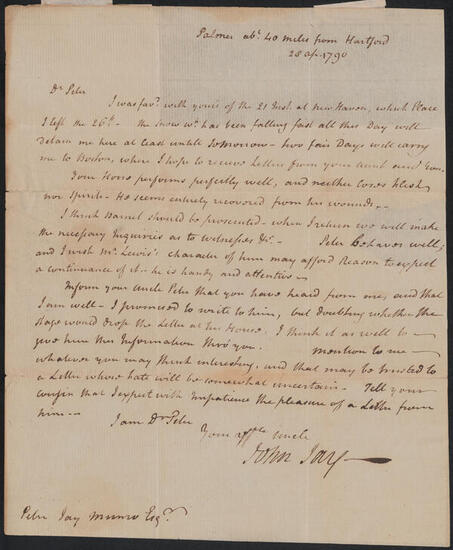 Palmer abt. 40 miles from Hartford
28 Ap. 1790
Dr Peter
I was favd. with yours of the 21 Inst. at new Haven, which Place
I left the 26th — the Snow wh. has been falling fast all this Day will
detain me here at least until tomorrow — two fair Days will carry
me to Boston, where I hope to receive Letters from your aunt and you.
Your Horse performs perfectly well, and neither loses Flesh
nor Spirits — He seems entirely recovered from his wounds. —
I think should be prosecuted — when I return we will make
the necessary Inquiries as to witnesses &c. — Peter behaves well;
and I wish Mr. Lewis's character of him may afford Reason to expect
a continuance of it — he is handy and attentive —
Inform your Uncle Peter that you have heard from me, and that
I am well — I promised to write to him, but doubting whether the
Stage would drop the Letter at his House, I think it as well to
give him this Information thro' you. mention to me —
whatever you may think interesting, and that may be trusted to
a Letter whose fate will be somewhat uncertain — Tell your
cousin that I expect with Impatience the pleasure of a Letter from
him —
I am Dr Peter
Your affte uncle
John Jay —
Peter Jay Munro Esqr.